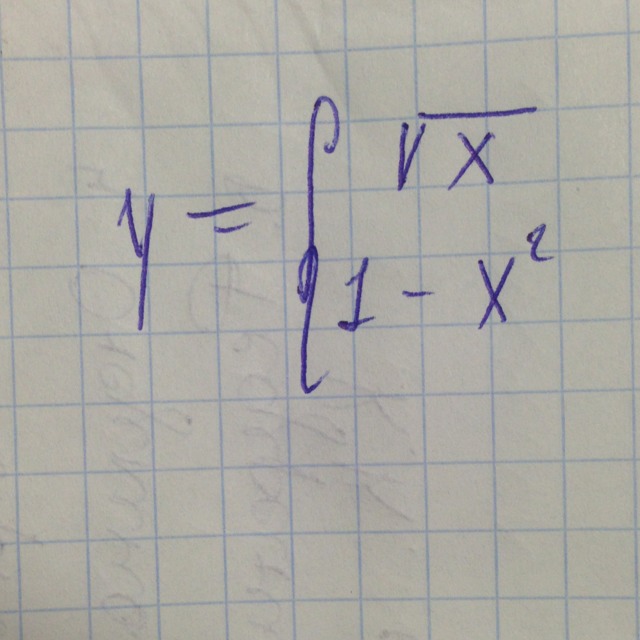 y = { √x
1 - x²